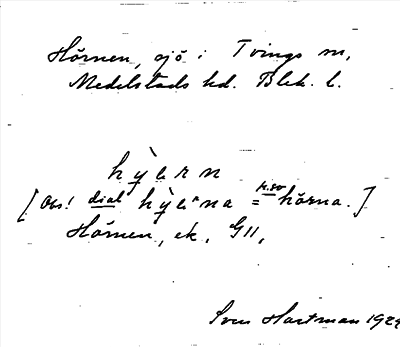 Hörnen, sjö i Tvings sn,
Medelstads hd. Blek. l.
hỳərn
[Obs! dial hỳəʳna = r.sv hörna.]
Hörnen, ek. G11,
Sven Hartman 1924